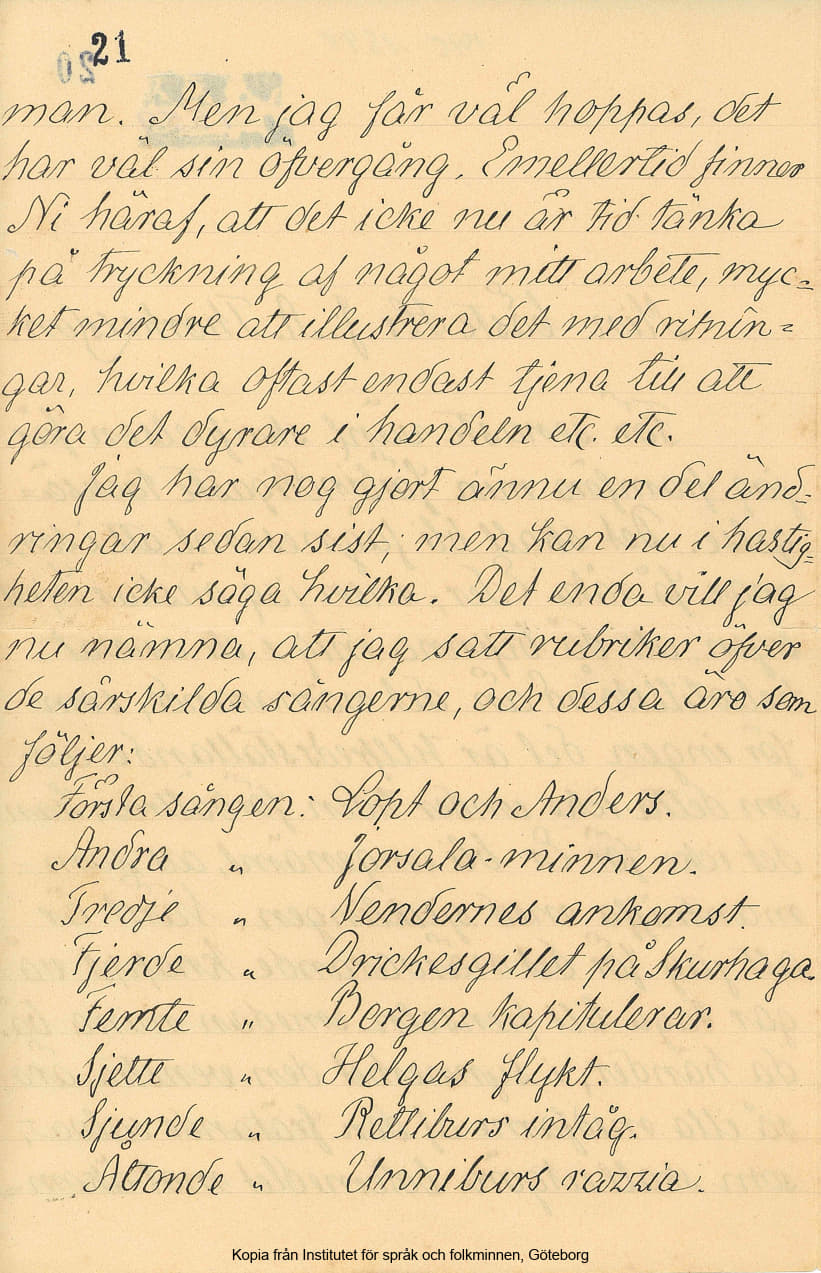 21
20
man. Men jag får väl hoppas, det
har väl sin öfvergång. Emellertid finner
Ni häraf, att det icke nu är tid tänka
på tryckning af något mitt arbete, myc=
ket mindre att illustrera det med ritnin=
gar, hvilka oftast endast tjena till att
göra det dyrare i handeln etc. etc.
Jag har nog gjort ännu en del änd=
ringar sedan sist, men kan nu i hastig=
heten icke säga hvilka. Det enda vill jag
nu nämna, att jag satt rubriker öfver
de särskilda sångerne, och dessa äro som
följer:
Första sången: Lopt och Anders.
Andra „ Jorsala-minnen.
Tredje „ Vendernes ankomst.
Fjerde „ Drickesgillet på Skurhaga.
Femte „ Borgen kapitulerar.
Sjette „ Helgas flykt.
Sjunde „ Rettiburs intåg.
Åttonde „ Unniburs razzia.
Kopia från Institutet för språk och folkminnen, Göteborg